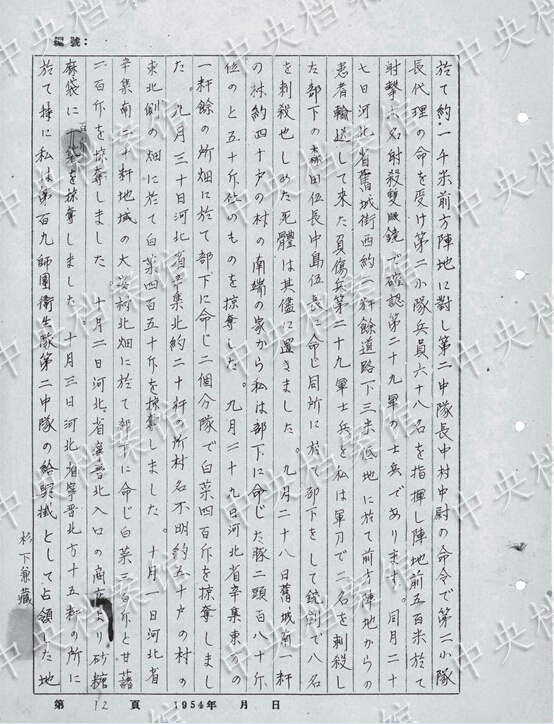 編號：
於て約一千米前方陣地に對し第二中隊長中村中尉の命令で第二小隊
長代理の命を受け第二小隊兵員六十八名を指揮し陣地前五百米於て
射擊六名射殺雙眼鏡で確認第二十九軍の士兵であります。同月二十
七日河北省舊城街西約一粁餘道路下三米低地に於て前方陣地からの
患者輸送して來た負傷兵第二十九軍士兵を私は軍刀で二名を刺殺し
左部下の森田伍長中島伍長に命じ同所に於て部下をして銃劍で八名
を刺殺せしめた死體は其儘に置きました。九月二十八日舊城南一粁
の村約四十戶の村の南端の家から私は部下に命じた豚二頭百八十斤
位のと五十斤位のものを掠奪した。九月二十九日河北省辛集東方の
一粁餘の所畑に於て部下に命じ二個分隊で白菜四百斤を掠奪しまし
た。九月三十日河北省辛集北約二十粁の所村名不明約五十戶の村の
東北側の畑に於て白菜四百五十斤を掠奪しました。十月一日河北省
辛集南三十粁地域の大姿村北畑に於て部下に命じ白菜三百斤と甘藷
二百斤を掠奪しました。十月二日河北省寧晋北入口の商店より砂糖
麻袋に一袋を掠奪しました。十月三日河北省寧晋北方十五粁の所に
於て特に私は第百九師團衛生隊第二中隊の給與掛として占領した地
杉下兼藏
第 12 頁 1954年 月 日
中央档案馆